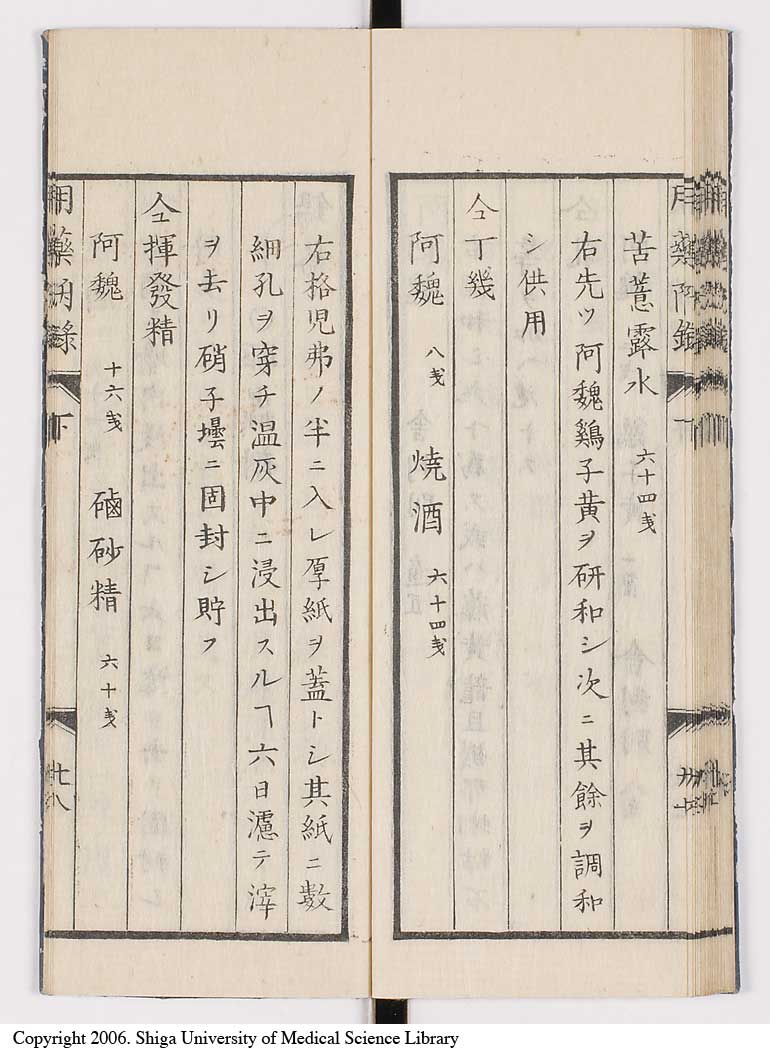 苦薏露水 六十四戔
右先ツ阿魏鷄子黄ヲ研和シ次ニ其餘ヲ調和
シ供用
仝丁幾
阿魏 八戔 焼酒 六十四戔
右格児弗ノ半ニ入レ厚紙ヲ蓋トシ其紙ニ數
細孔ヲ穿チ温灰中ニ浸出スルヿ六日濾テ滓
ヲ去リ硝子壜ニ固封シ貯フ
仝揮發精
阿魏 十六戔 磠砂精 六十戔
下
廿八
Copyright 2006. Shiga University of Medical Science Library